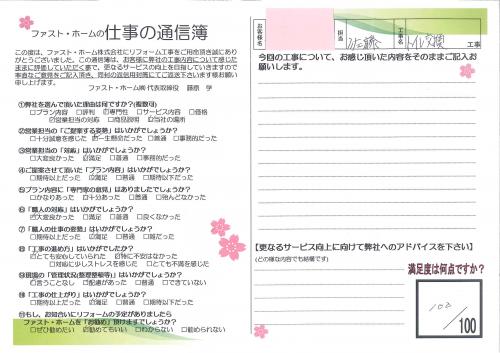 ファスト・ホームの 仕事の通信簿
この度は、ファスト・ホーム株式会社にリフォーム工事をご用命頂き誠にあり
がとうございました。この通信簿は、お客様に弊社の工事内容について感じた
ままに評価していただく事で、更なるサービスの向上を目指していきますので
率直なご意見をご記入頂き、同封の返信用封筒にてご返送下さいます様お願い
申し上げます。
ファスト・ホーム㈱ 代表取締役 藤原 学
①弊社を選んで頂いた理由は何ですか?(複数可)
□プラン内容 □評判 □専門性 □サービス内容 □価格
□営業担当の対応 □商品説明 ☑当社の場所
②営業担当の「ご提案する姿勢」はいかがでしょうか?
□十分誠意を感じた ☑一生懸命だった □普通 □事務的だった
③営業担当の「対応」はいかがでしょうか?
□大変良かった ☑満足 □普通 □事務的だった
④ご提案させて頂いた「プラン内容」はいかがでしょうか?
□期待以上だった ☑満足 □普通 □期待以下だった
⑤プラン内容に「専門家の意見」はありましたでしょうか?
□かなりあった ☑十分あった □普通 □殆んどなかった
⑥「職人の対応」はいかがでしょうか?
☑大変良かった □満足 □普通 □良くなかった
⑦「職人の仕事の姿勢」はいかがでしょうか?
□期待以上だった ☑満足 □普通 □雑だった
⑧「工事の進め方」はいかがでしたか?
□とても安心していられた ☑特に不安はなかった
□対応に少しストレスを感じた □とても不満を感じた
⑨現場の「管理状況(整理整頓等)」はいかがでしょうか?
□言うことなし □配慮があった □普通 □できていない
⑩「工事の仕上がり」はいかがでしょうか?
□期待以上だった ☑満足 □普通 □期待以下だった
⑪もし、お知合いにリフォームの予定がありましたら
ファスト・ホームを「お勧め」頂けますでしょうか?
□ぜひ勧めたい ☑勧めてもいい □わからない □勧められない
お客様名
担当
工事名
トイレ交換
工事
今回の工事について、お感じ頂いた内容をそのままご記入お
願いします。
【更なるサービス向上に向けて弊社へのアドバイスを下さい】
(どの様な内容でも結構です)
満足度は何点ですか?
100
/100